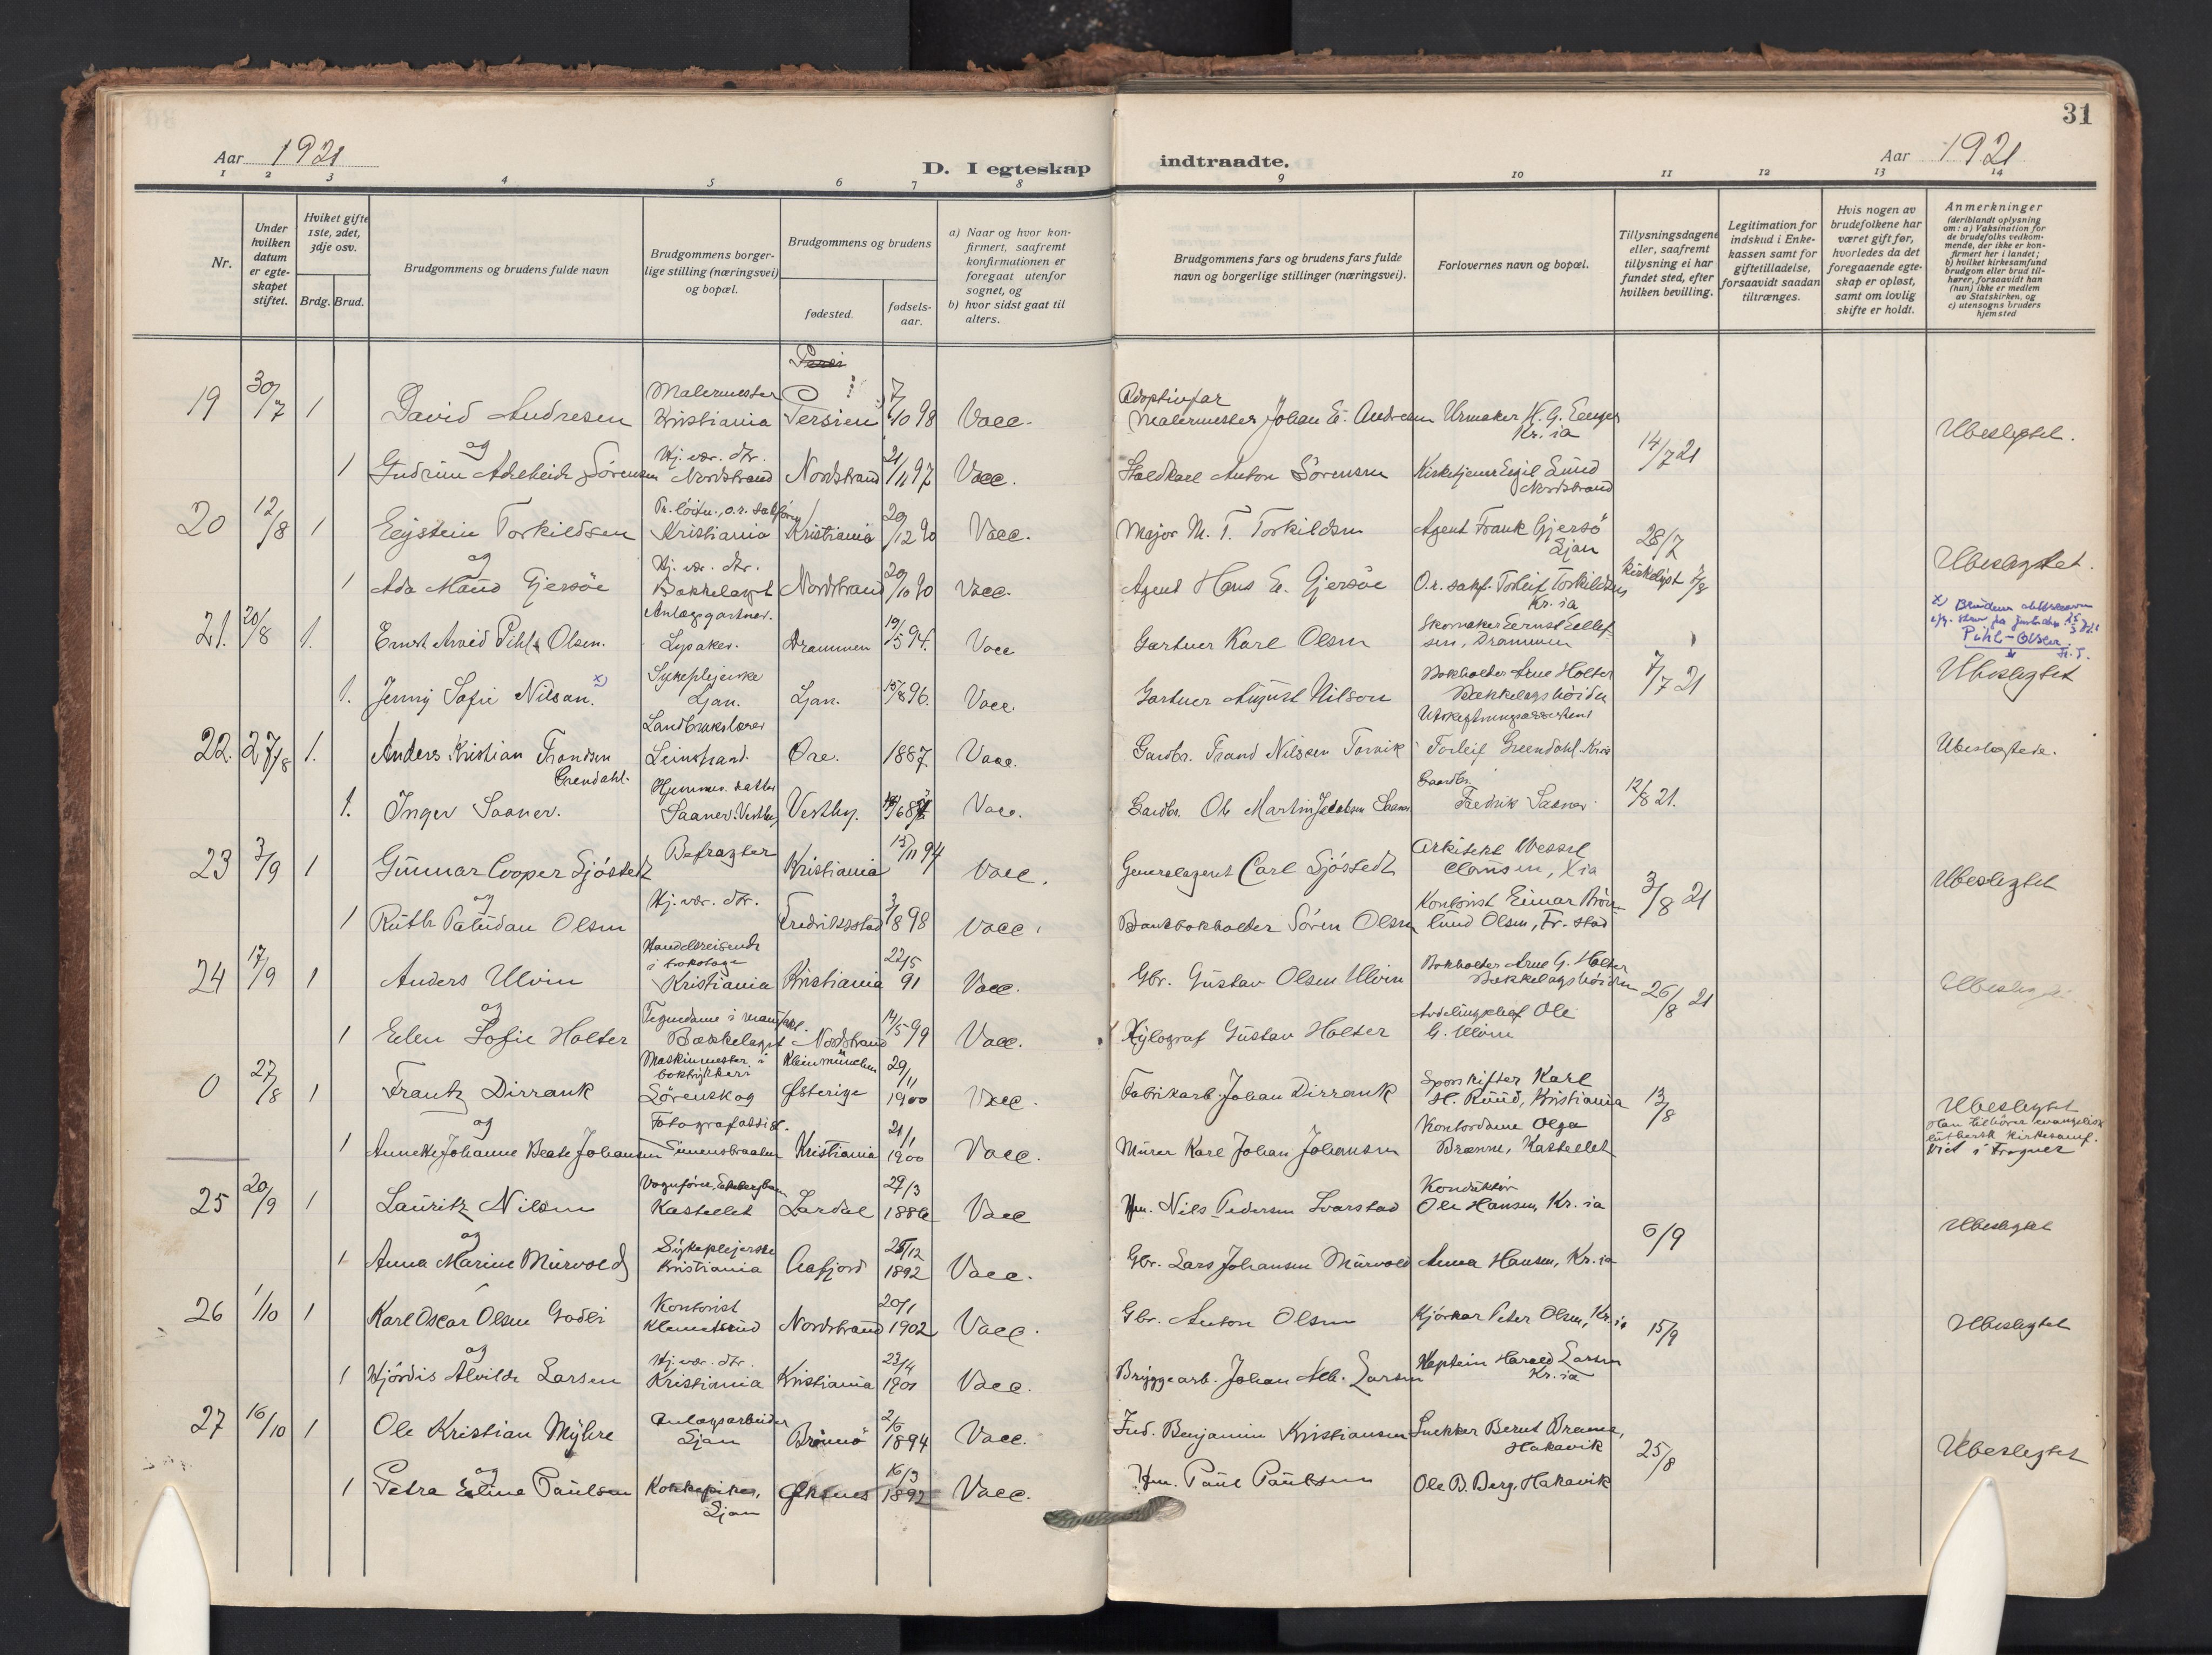 31
Aar 1921
D. I egteskap indtraadte.
Aar 1921
1 2 3 4 5 6 7 8 9 10 11 12 13 14
Nr.
Under hvilken datum er egteskapet stiftet.
Hviket gifte 1ste, 2det, 3dje osv.
Brdg. Brud.
Brudgommens og brudens fulde navn
Brudgommens borgerlige stilling (næringsvei) og bopæl.
Brudgommens og brudens
fødested.
fødselsaar.
a) Naar og hvor konfirmert, saafremt konfirmationen er foregaat utenfor sognet, og
b) hvor sidst gaat til alters.
Brudgommens fars og brudens fars fulde navn og borgerlige stillinger (næringsvei).
Forlovernes navn og bopæl.
Tillysningsdagene eller, saafremt tillysning ei har fundet sted, efter hvilken bevilling.
Legitimation for indskud i Enkekassen samt for giftetilladelse, forsaavidt saadan tiltrænges.
Hvis nogen av brudefolkene har været gift før, hvorledes da det foregaaende egteskap er opløst, samt om lovlig skifte er holdt.
Anmerkninger
(deriblandt oplysning om: a) Vaksination for de brudefolks vedkommende, der ikke er konfirmert her i landet; b) hvilket kirkesamfund brudgom eller brud tilhører, forsaavidt han (hun) ikke er medlem av Statskirken, og c) utensogns bruders hjemsted
19 30/7 1 David Andresen Malermester Kristiania 7/10 98 Vacc. Adoptivfar Malermester Johan E. Andresen Urmaker H. G. Kr.ia 14/7 21 Ubeslegtet.
og
1 Gudrun Adelheid Sörensen Hj. vær. dtr. Nordstrand Nordstrand 21/11 97 Vacc. Staldkarl Anton Sörensen Kirketjener Egil Lund Nordstrand
20 12/8 1 Eystein Torkildsen Kristiania Kristiania 20/12 90 Vacc. Major M. T. Torkildsen Agent Frank Gjersö Ljan 28/7 Ubeslegtet.
og
1 Ada Maud Gjersöe Hj. vær. dtr. Bækkelaget Nordstrand 20/10 90 Vacc. Agent Hans E. Gjersöe O.r. sakf. Torleif Torkildsen Kr.ia
21. 20/8 1. Ernst Arvid Pihl Olsen. Anlægsgartner. Lysaker. Drammen 19/5 94. Vacc Gartner Karl Olsen Skomaker Ernst Ellefsen, Drammen
Pihl-Olsen
1. Jenny Sofie Nilsen. x) Sykepleierske Ljan. Ljan. 15/8 96. Vacc. Gartner August Nilson Bokholder Arne Holter Bækkelagshöiden 7/7 21 Ubeslegtet
22. 27/8 1. Anders Kristian Trondsen Grendahl. Landbrukslærer Leinstrand. Øre. 1887. Vacc. Gaardbr. Trond Nilssen Torvik Utskiftningsassistent Torleif Greendahl. Kria Ubeslegtede.
1. Inger Saaner. Hjemmev. datter Saaner. Vestby Vestby. Vacc. Gardbr. Ole Martin Jacobsen Saaner Gaardbr. Fredrik Saaner. 12/8 21.
23 3/9 1 Gunnar Cooper Sjöstedt Befragter Kristiania 15/11 94 Vacc. Generalagent Carl Sjöstedt Arkitekt Wessel Clausen, Xia 3/8 21 Ubeslegtet
og
1 Ruth Paludan Olsen Hj. vær. dtr. Fredriksstad 3/8 98 Vacc. Bankbokholder Sören Olsen Kontorist Einar Brönlund Olsen, Fr.stad
24 17/9 1 Anders Ulvin Handelsreisende Kristiania Kristiania 22/5 91 Vacc. Gbr. Gustav Olsen Ulvin Bokholder Arne G. Holter Bækkelagshöiden 26/8 21 Ubeslegtet
og
1 Ellen Sofie Holter Bækkelaget Nordstrand 14/5 99 Vacc. Xylograf Gustav Holter Avdelingschef Ole G. Ulvin
0 27/8 1 Frantz Dirrank Maskinmester i boktrykkeri Sörenskog Kleinmünchen Østerige 29/11 1900 Vacc. Fabrikarb. Johan Dirrank Sporskifter Karl H. Ruud, Kristiania 13/8 Ubeslegtet Han tilhörer evangelisk luthersk kirkesamf. Viet i Frogner
og
1 Annette Johanne Beate Johansen Fotografassist. Simensbraaten Kristiania 21/1 1900 Vacc. Murer Karl Johan Johansen Kontordame Olga Brænne, Kastellet
25 20/9 1 Lauritz Nilsen Vognförer, Ekebergban Kastellet Lardal 29/3 1886 Vacc Hm. Nils Pedersen Svarstad Konduktör Ole Hansen, Kr.ia 6/9 Ubeslegtet
og
1 Anna Marine Murvold Sykepleierske Kristiania Aafjord 25/12 1892 Vacc. Gbr. Lars Johansen Murvold Anna Hansen, Kr.ia
26 1/10 1 Karl Oscar Olsen Godli Kontorist Klemetsrud Nordstrand 20/1 1902 Vacc. Gbr. Anton Olsen Kjörkar Peter Olsen, Kr.ia 15/9 Ubeslegtet
og
1 Hjördis Alvilde Larsen Hj. vær. dtr. Kristiania Kristiania 23/4 1901 Vacc. Bryggearb. Johan Alb. Larsen Kaptein Harald Larsen Kr.ia
27 16/10 1 Ole Kristian Myhre Anlægsarbeider Ljan Brönnö 2/6 1894 Vacc. Ind. Benjamin Kristiansen Snekker Bernt Brame, Hakavik 25/8 Ubeslegtet
og
1 Petra Eline Paulsen Kokkepike, Ljan Øksnes 16/3 1892 Vacc. Hm. Paul Paulsen Ole B. Berg, Hakavik